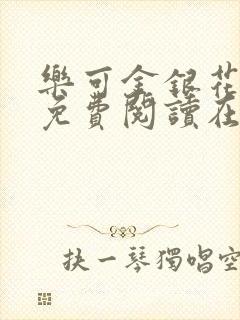 樂可金銀花
免費閱讀在
抉一琴獨唱空